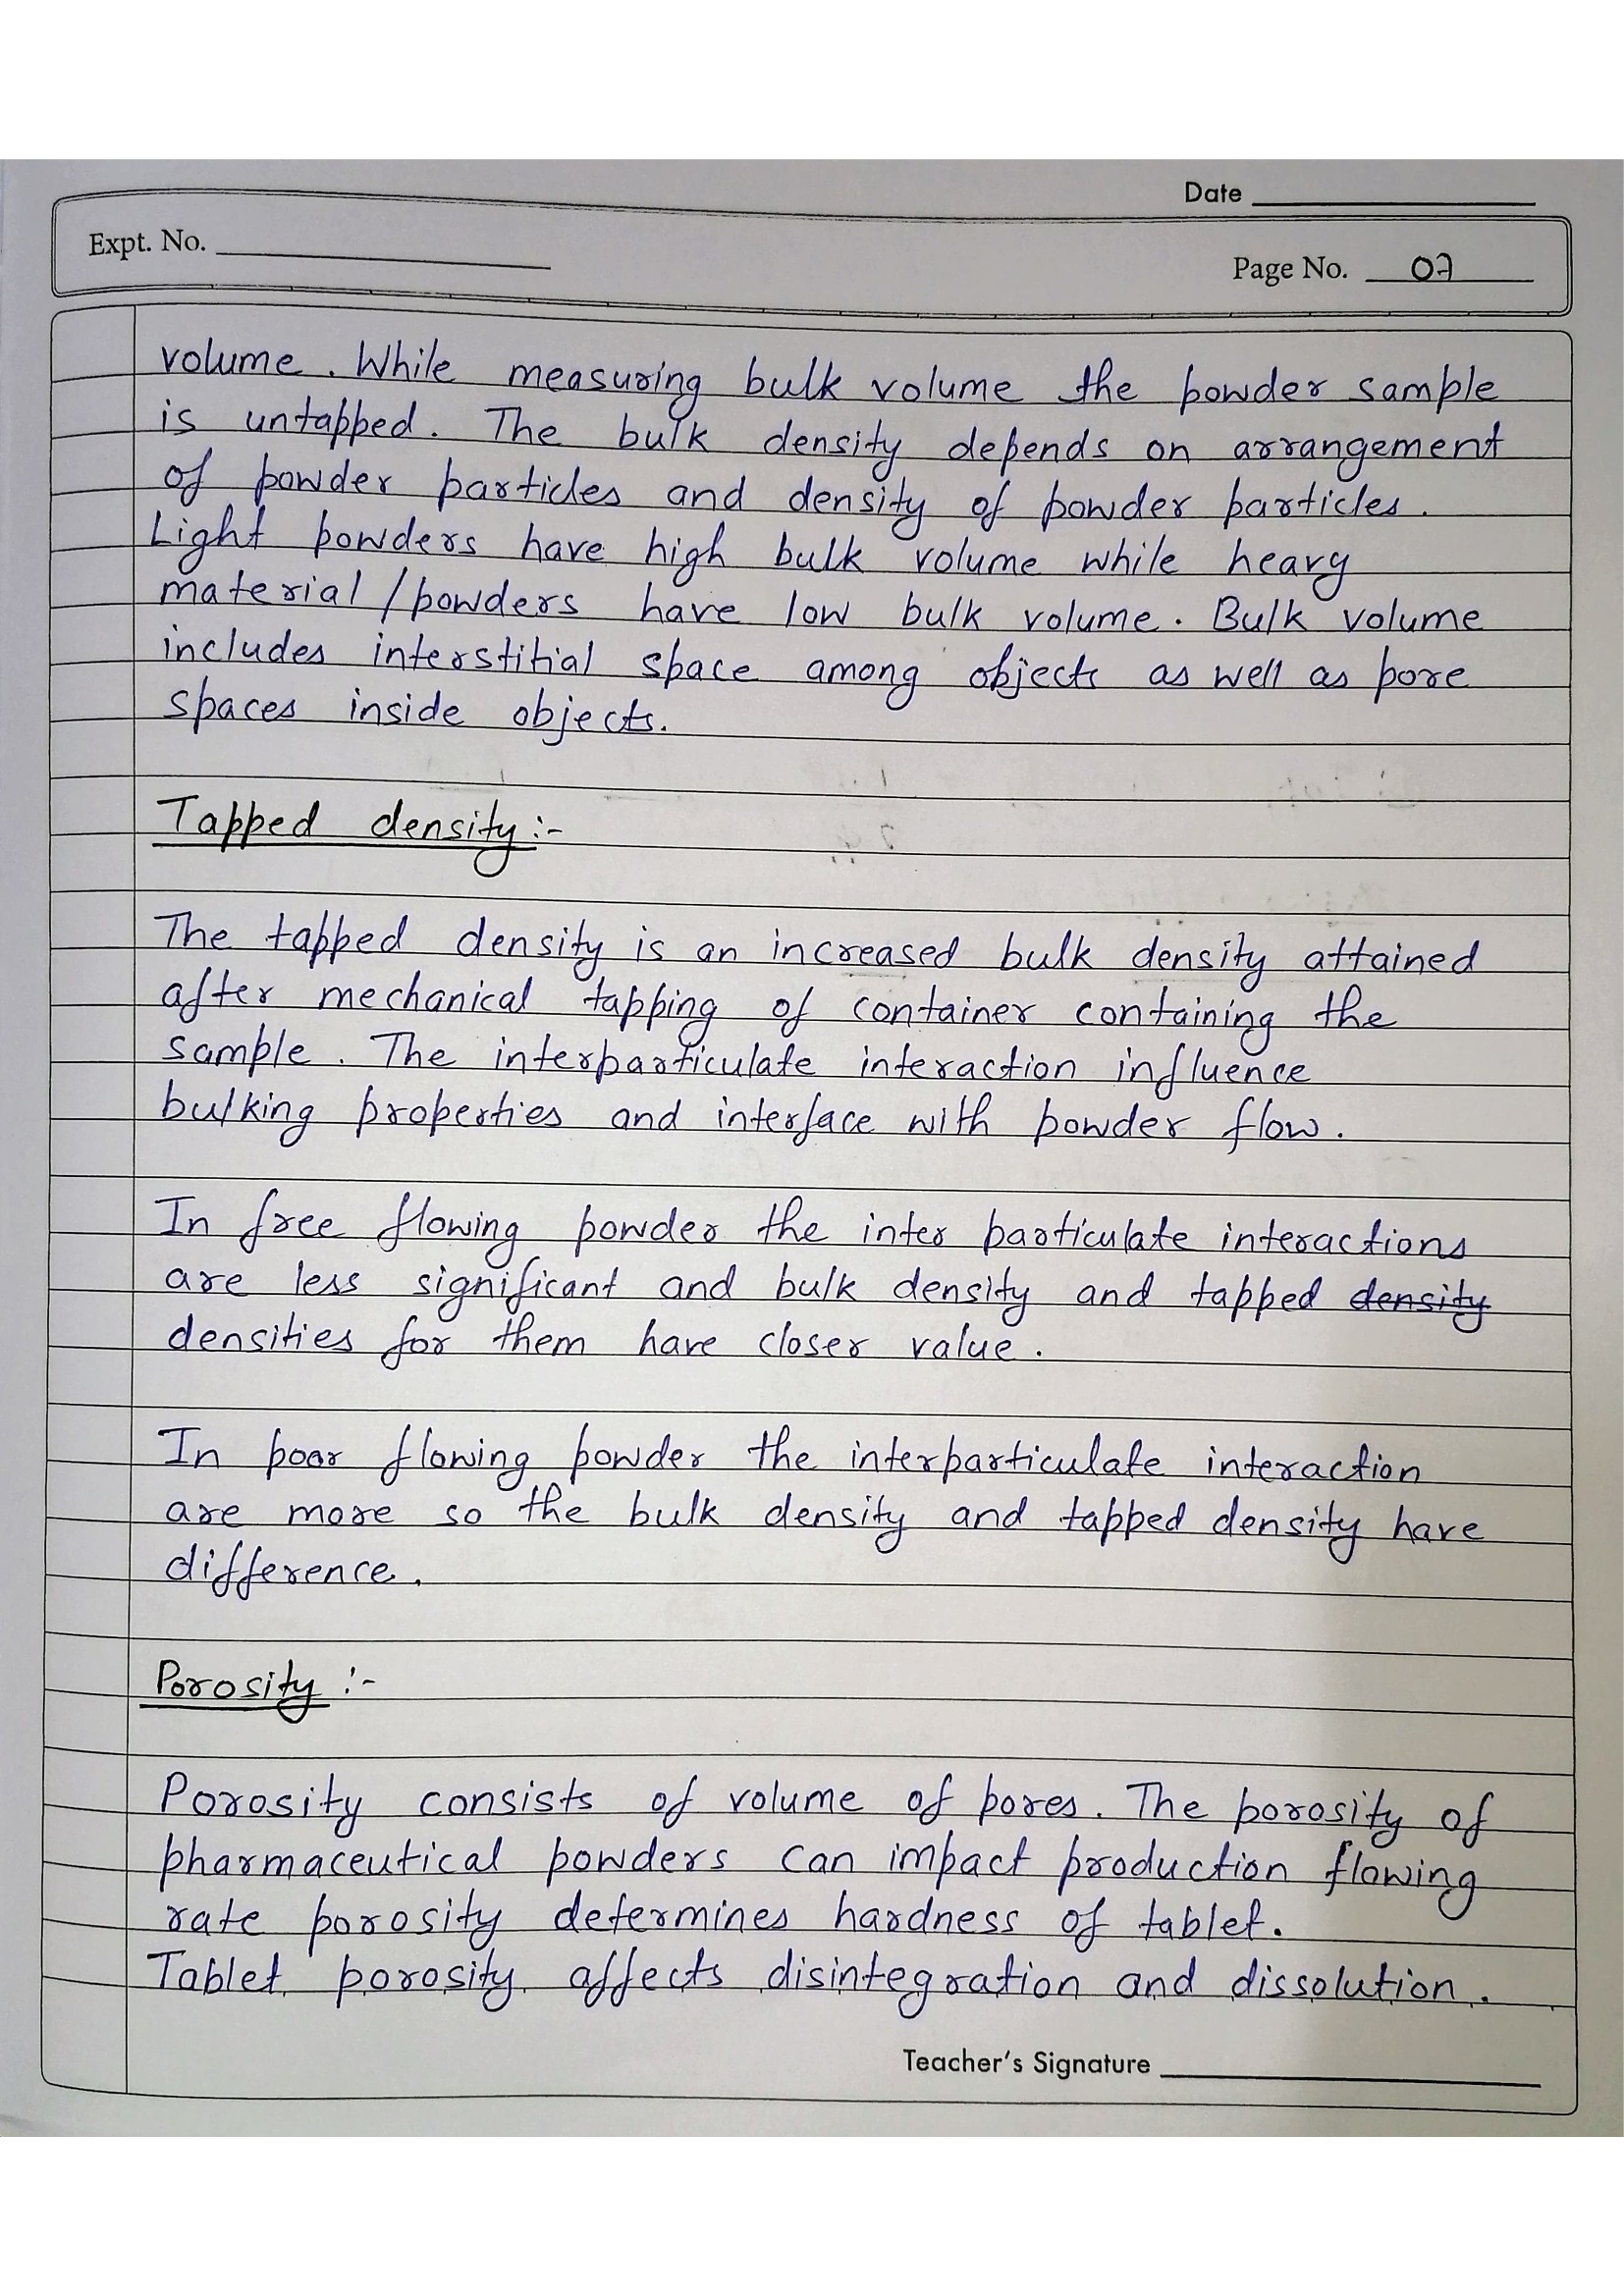 Date
Expt. No.
Page No. 07
volume. While measuring bulk volume the powder sample
is untapped. The bulk density depends on arrangement
of powder particles and density of powder particles.
Light powders have high bulk volume while heavy
material / powders have low bulk volume. Bulk volume
includes interstitial space among objects as well as pore
spaces inside objects.
Tapped density :-
The tapped density is an increased bulk density attained
after mechanical tapping of container containing the
sample. The interparticulate interaction influence
bulking properties and interface with powder flow.
In free flowing powder the inter particulate interactions
are less significant and bulk density and tapped density
densities for them have closer value.
In poor flowing powder the interparticulate interaction
are more so the bulk density and tapped density have
difference.
Porosity :-
Porosity consists of volume of pores. The porosity of
pharmaceutical powders can impact production flowing
rate porosity determines hardness of tablet.
Tablet porosity affects disintegration and dissolution.
Teacher's Signature